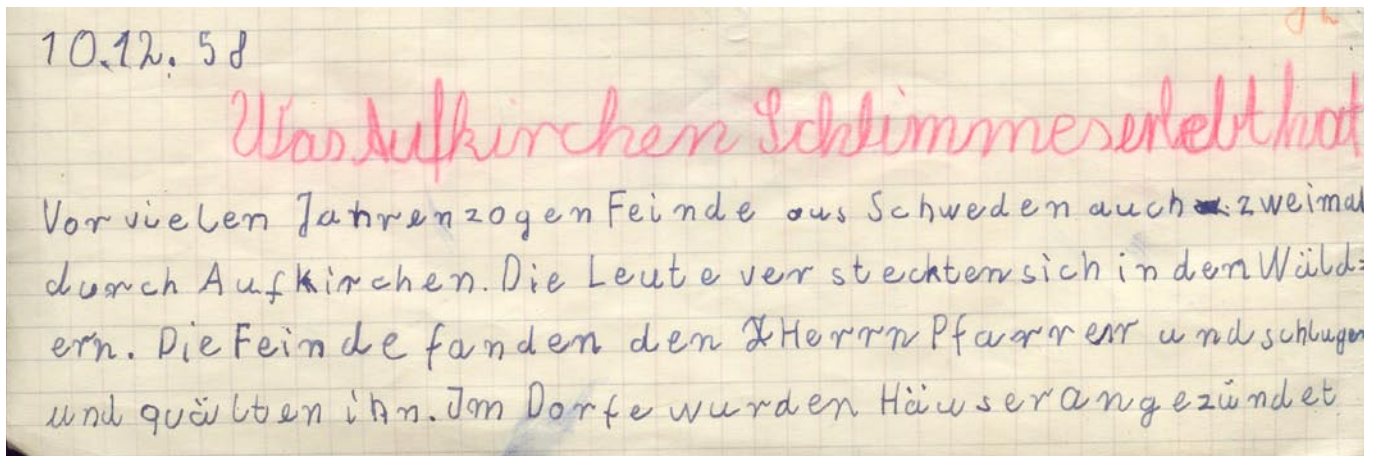 10.12.58
Was Aufkirchen Schlimmes erlebt hat
Vor vielen Jahren zogen Feinde aus Schweden auch zweimal
durch Aufkirchen. Die Leute versteckten sich in den Wäld=
ern. Die Feinde fanden den Herrn Pfarrer und schlugen
und quälten ihn. Im Dorfe wurden Häuser angezündet